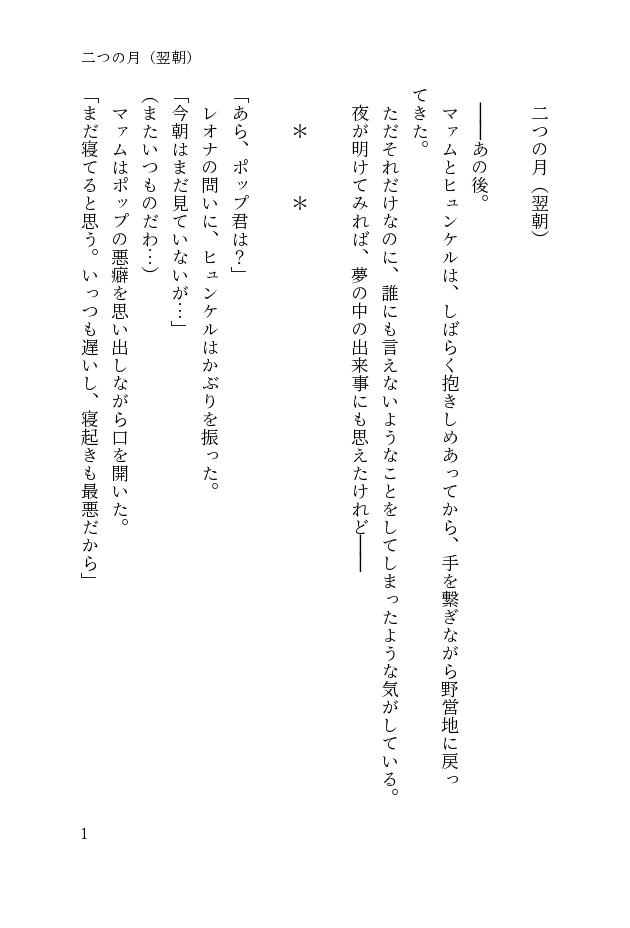 二つの月（翌朝）
二つの月（翌朝）
――あの後。
マァムとヒュンケルは、しばらく抱きしめあってから、手を繋ぎながら野営地に戻っ
てきた。
ただそれだけなのに、誰にも言えないようなことをしてしまったような気がしている。
夜が明けてみれば、夢の中の出来事にも思えたけれど――
＊　＊
「あら、ポップ君は？」
レオナの問いに、ヒュンケルはかぶりを振った。
「今朝はまだ見ていないが…」
（またいつものだわ…）
マァムはポップの悪癖を思い出しながら口を開いた。
「まだ寝てると思う。いっつも遅いし、寝起きも最悪だから」
1